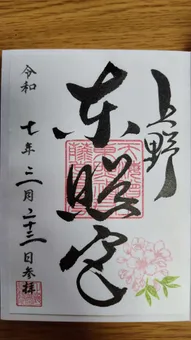 上野
東照宮
令和七年三月二十三日参拝